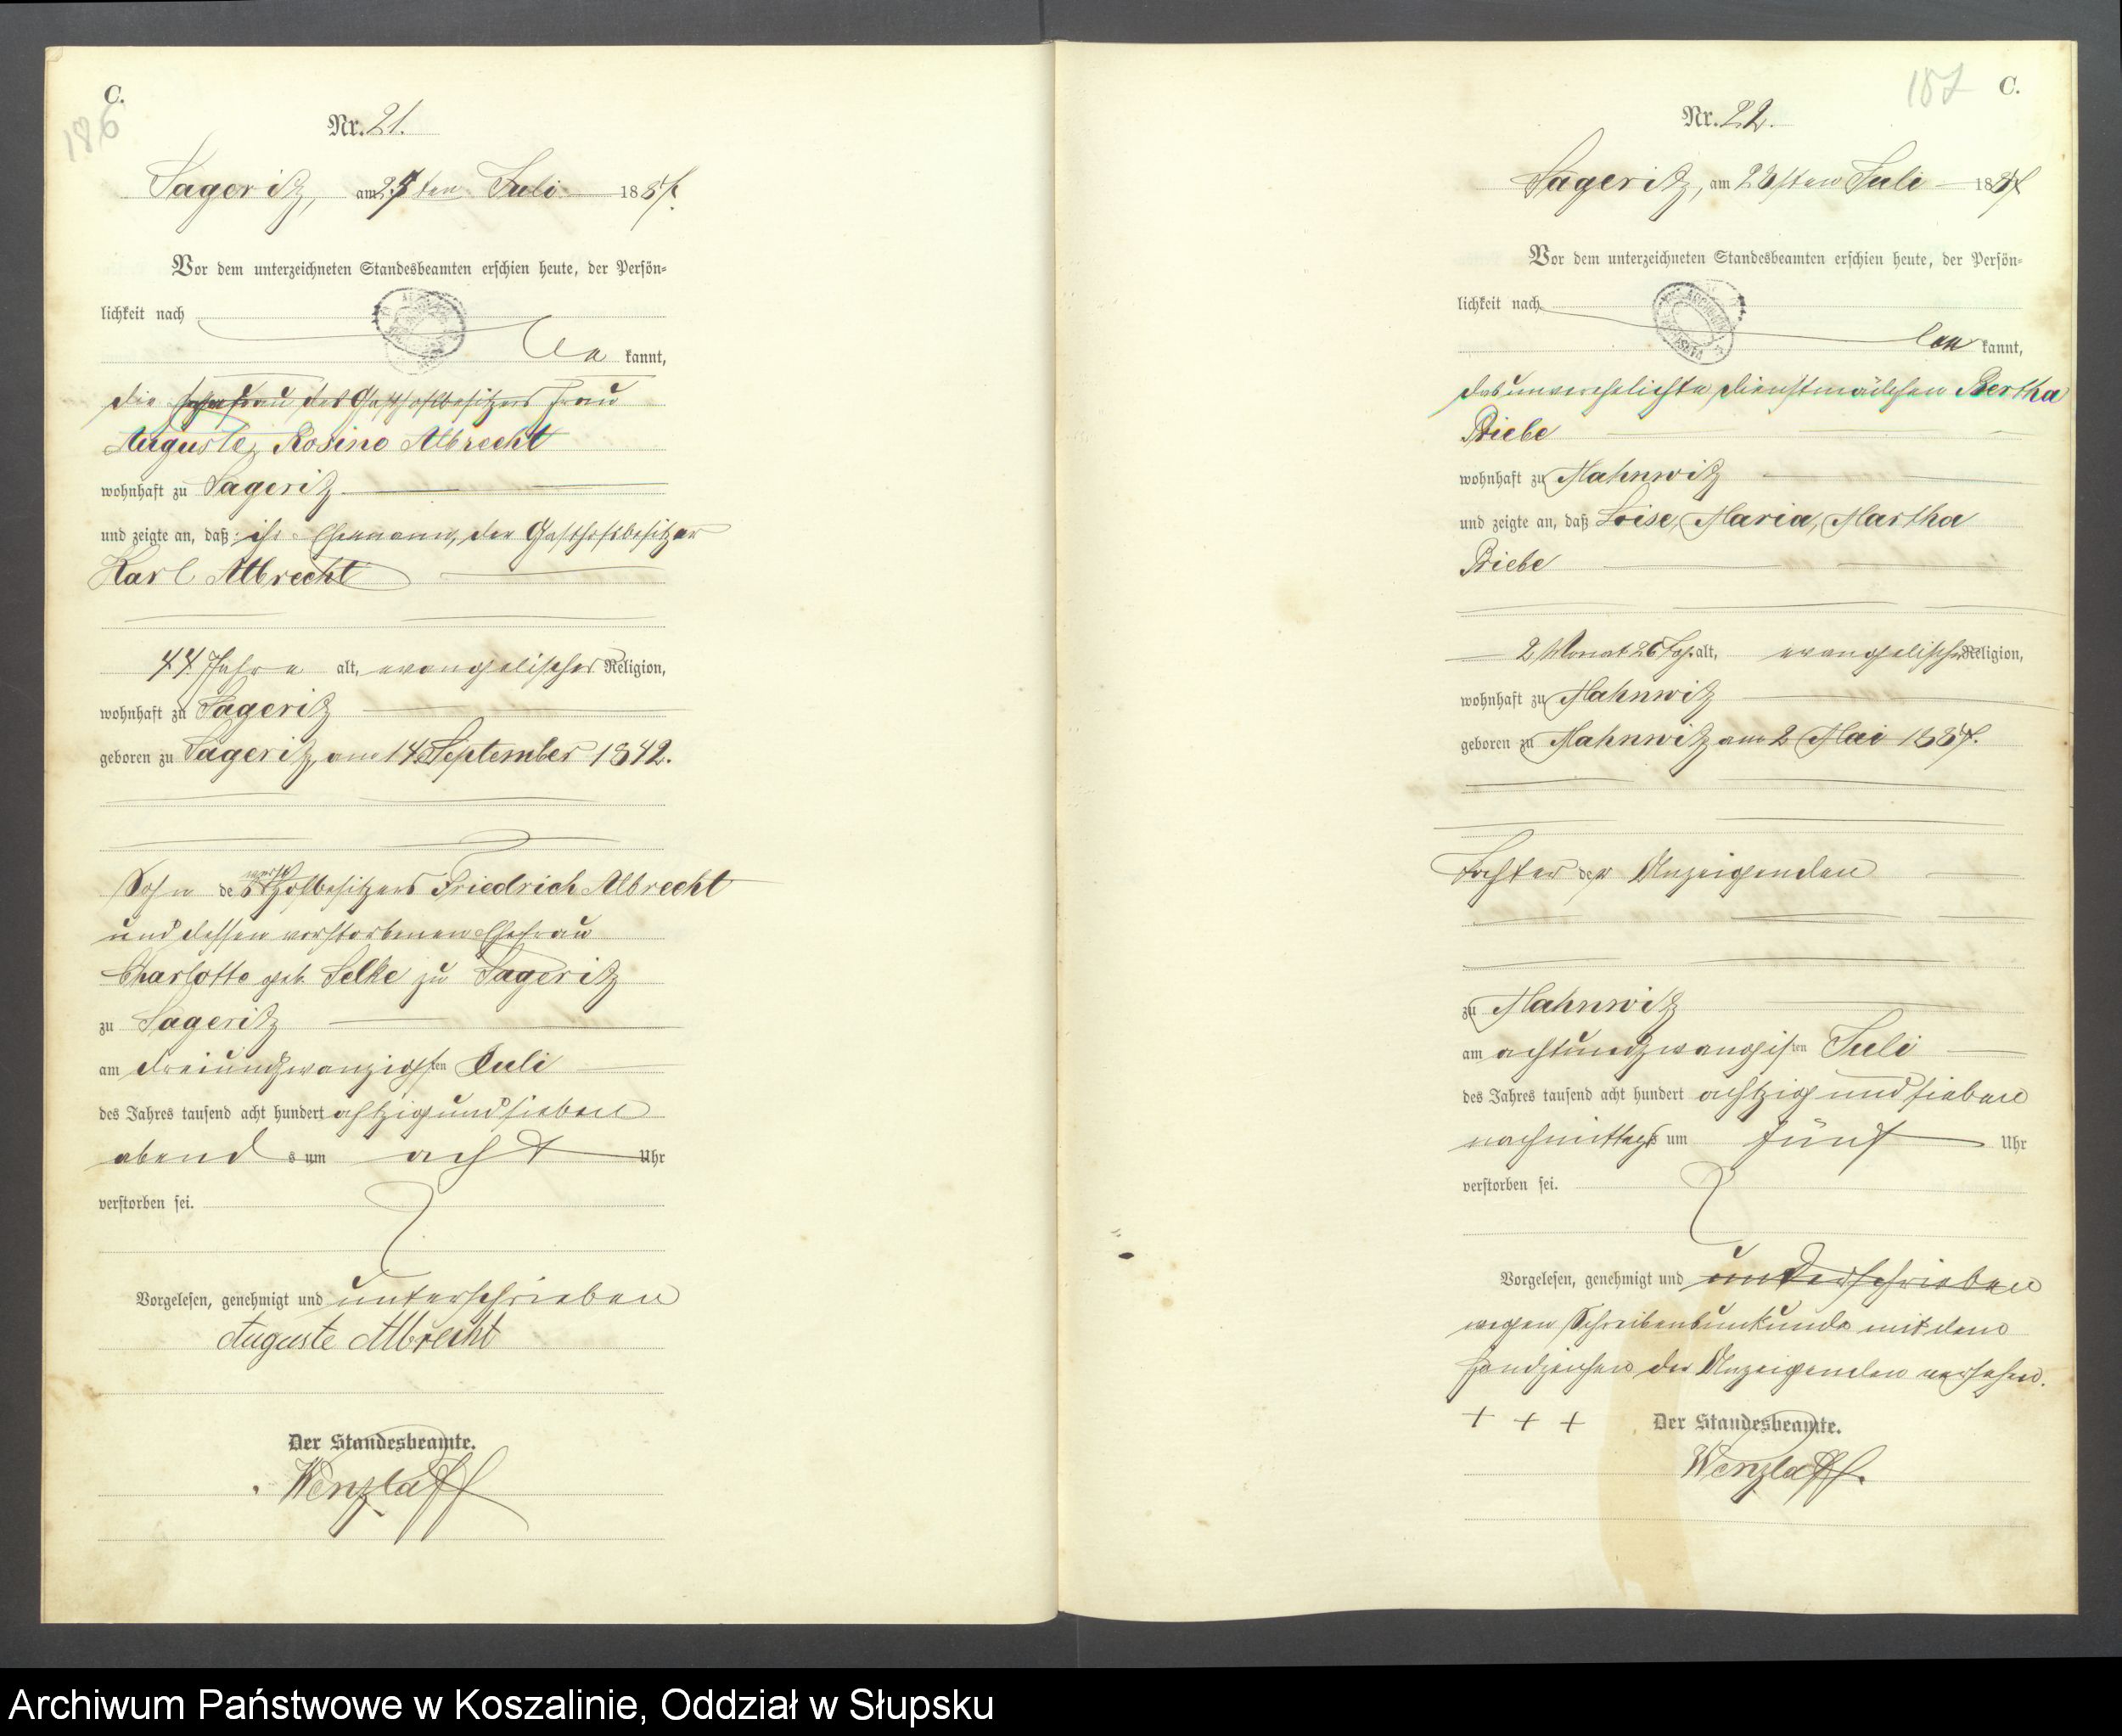 C.
186
Nr. 21.
Sageritz, am 25ten Juli 1887.
Vor dem unterzeichneten Standesbeamten erschien heute, der Persön=
lichkeit nach
be kannt,
die Ehefrau des Gasthofbesitzers Frau
Auguste, Rosine Albrecht
wohnhaft zu Sageritz
und zeigte an, daß ihr Ehemann, der Gasthofsbesitzer
Karl Albrecht
44 Jahre alt, evangelischer Religion,
wohnhaft zu Sageritz
geboren zu Sageritz, am 14. September 1842.
Sohn des verst. Hofbesitzers Friedrich Albrecht
und dessen verstorbenen Ehefrau
Charlotte geb. Selke zu Sageritz
zu Sageritz
am dreiundzwanzigsten Juli
des Jahres tausend acht hundert achtzig und sieben
abend s um acht Uhr
verstorben sei.
Vorgelesen, genehmigt und unterschrieben
Auguste Albrecht
Der Standesbeamte.
Wenzlaff
187
C.
Nr. 22.
Sageritz, am sten Juli 1887
Vor dem unterzeichneten Standesbeamten erschien heute, der Persön=
lichkeit nach
be kannt,
das unverehelichte Dienstmädchen Bertha
Priebe
wohnhaft zu Mahnwitz
und zeigte an, daß Loise, Maria, Martha
Priebe
2 Monat 26 Tage alt, evangelischer Religion,
wohnhaft zu Mahnwitz
geboren zu Mahnwitz am 2 Mai 1887.
Tochter der Anzeigenden
zu Mahnwitz
am achtundzwanzigsten Juli
des Jahres tausend acht hundert achtzig und sieben
nachmittags um fünf Uhr
verstorben sei.
Vorgelesen, genehmigt und unterschrieben
wegen Schreibensunkunde mit dem
Handzeichen der Anzeigenden versehen.
+ + + Der Standesbeamte.
Wenzlaff.
Archiwum Państwowe w Koszalinie, Oddział w Słupsku